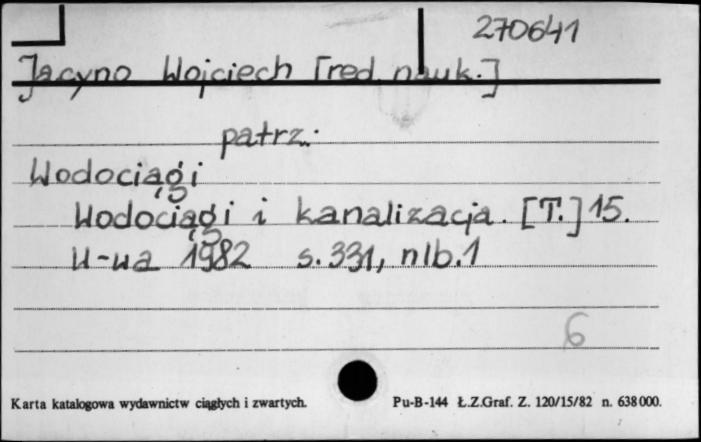 270641
Jacyno Wojciech [red. nauk.]
patrz:
Wodociągi
Wodociągi i kanalizacja. [T.] 15.
W-wa 1982 s. 331, nlb. 1
6
Karta katalogowa wydawnictw ciągłych i zwartych. Pu-B-144 Ł.Z.Graf. Z. 120/15/82 n. 638000.